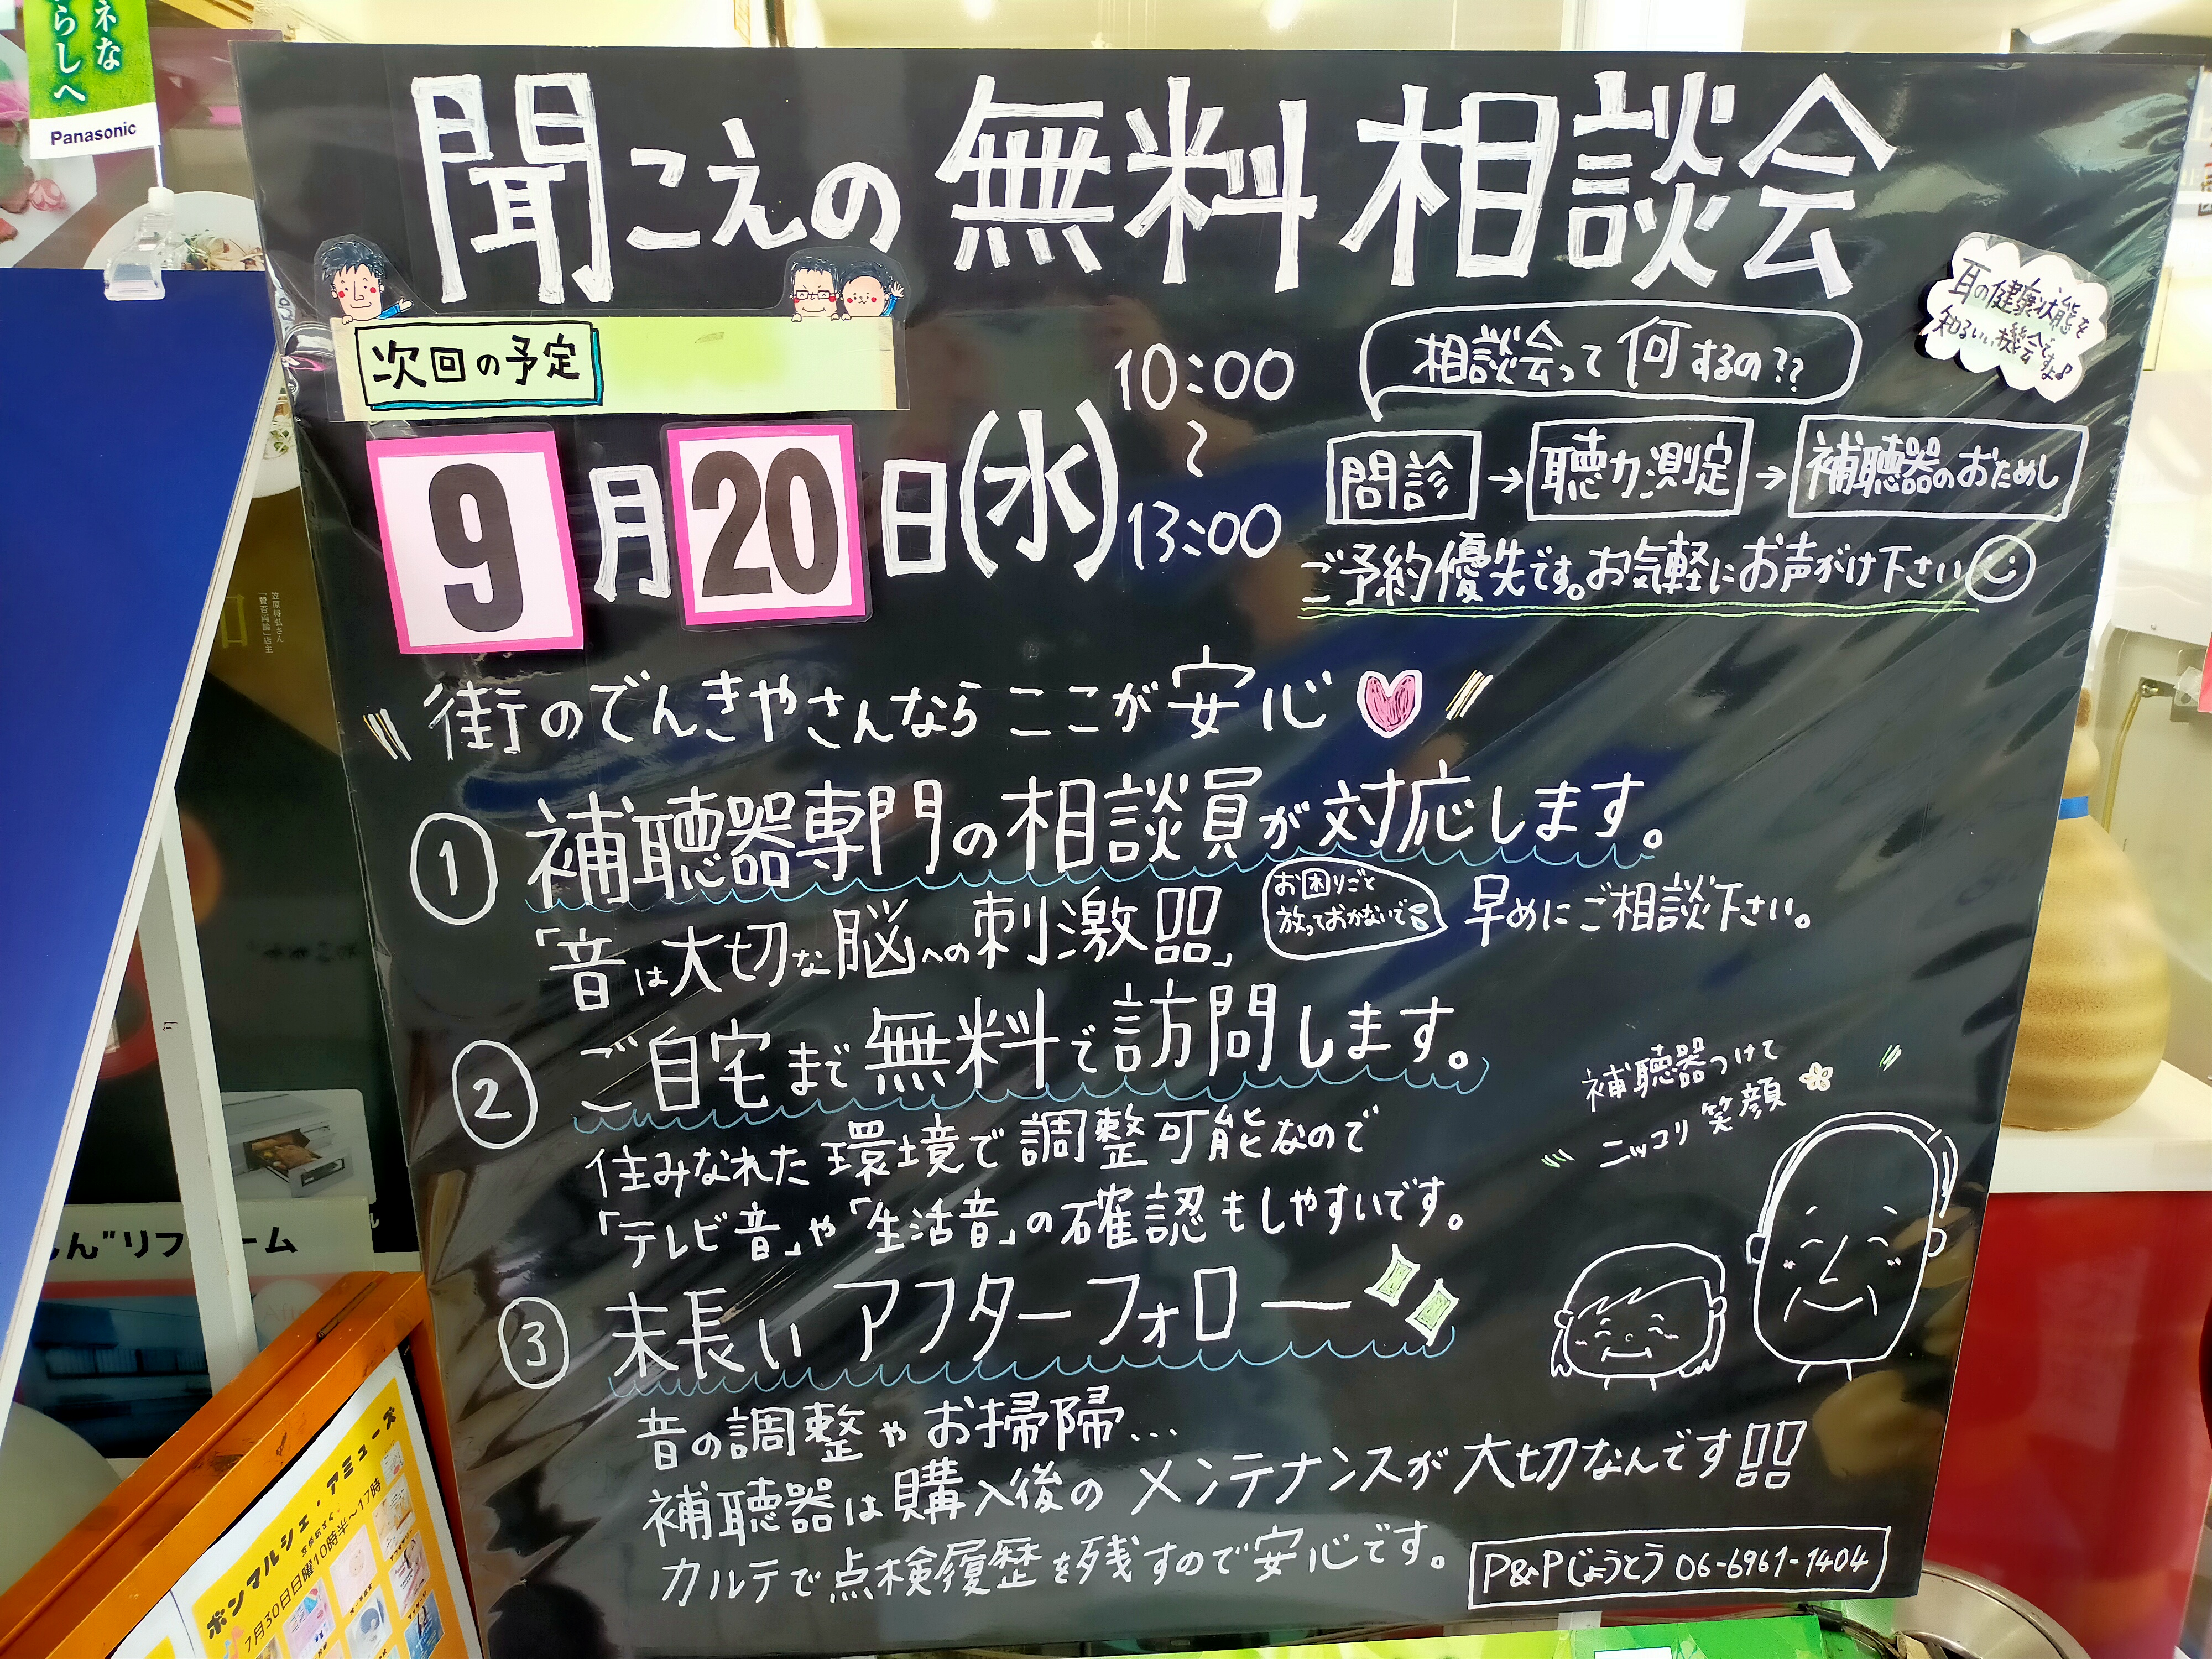 ネな
らしへ
Panasonic
聞こえの無料相談会
次回の予定
9月20日(水)
10:00
〜
13:00
相談会って何するの??
耳の健康状態を
知るいい機会ですよ♪
問診→聴力測定→補聴器のおためし
ご予約優先です。お気軽にお声がけ下さい
笠原将弘さん
「賛否両論」店主
街のでんきやさんなら ここが安心
① 補聴器専門の相談員が対応します。
「音は大切な脳への刺激器」
お困りごと
放っておかないで
早めにご相談下さい。
② ご自宅まで無料で訪問します。
住みなれた環境で調整可能なので
「テレビ音」や「生活音」の確認もしやすいです。
補聴器つけて
ニッコリ笑顔
③ 末長いアフターフォロー
音の調整やお掃除...
補聴器は購入後のメンテナンスが大切なんです!!
カルテで点検履歴を残すので安心です。
P&Pじょうとう 06-6961-1404
ボンマルシェ・アミューズ
7月30日日曜10時半〜17時